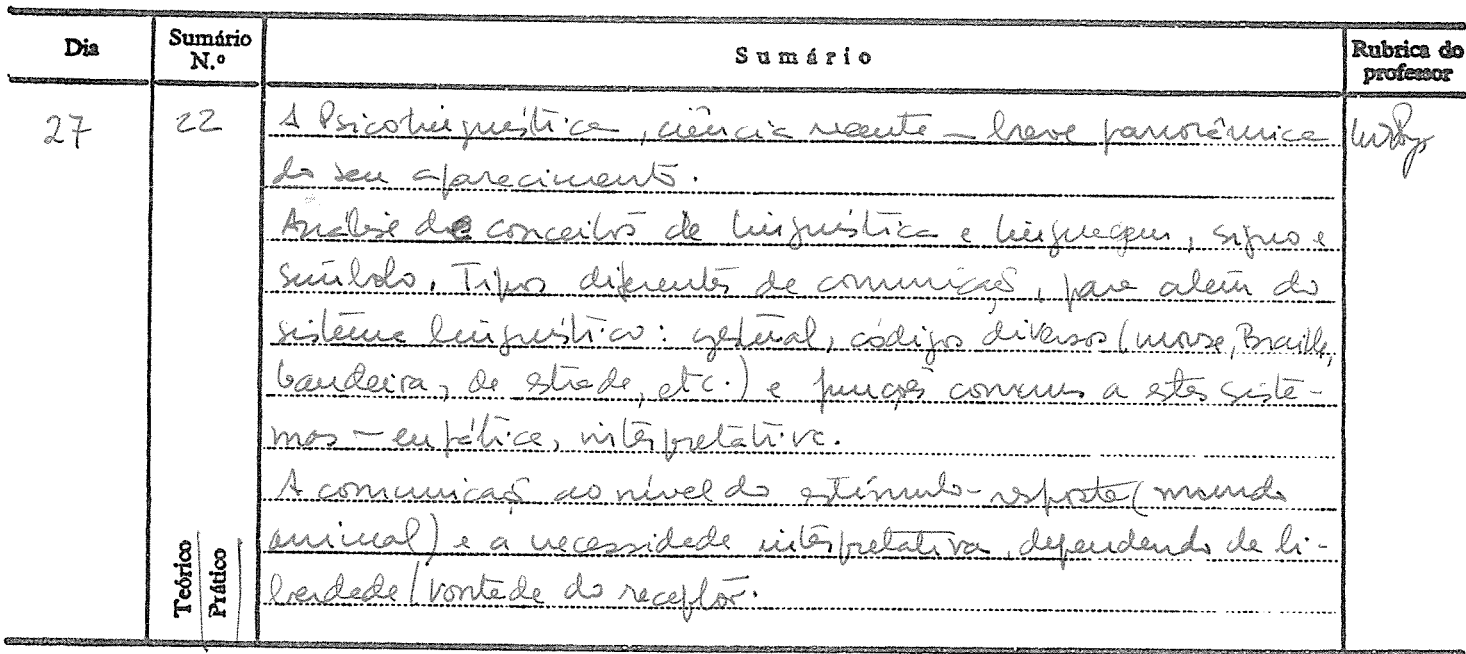 Dia Sumário N.º Sumário Rubrica do professor
27 22 A Psicolinguística, ciência recente – breve panorâmica
do seu aparecimento.
Análise de conceitos de linguística e linguagem, signo e
símbolo. Tipos diferentes de comunicação, para além do
sistema linguístico: gestual, códigos diversos (morse, Braille,
bandeira, de estrada, etc.) e funções comuns a estes siste-
mas – enfática, interpretativa.
A comunicação ao nível do estímulo-resposta (mundo
animal) e a necessidade interpretativa, dependendo da li-
berdade/vontade do receptor.
Teórico
Prático